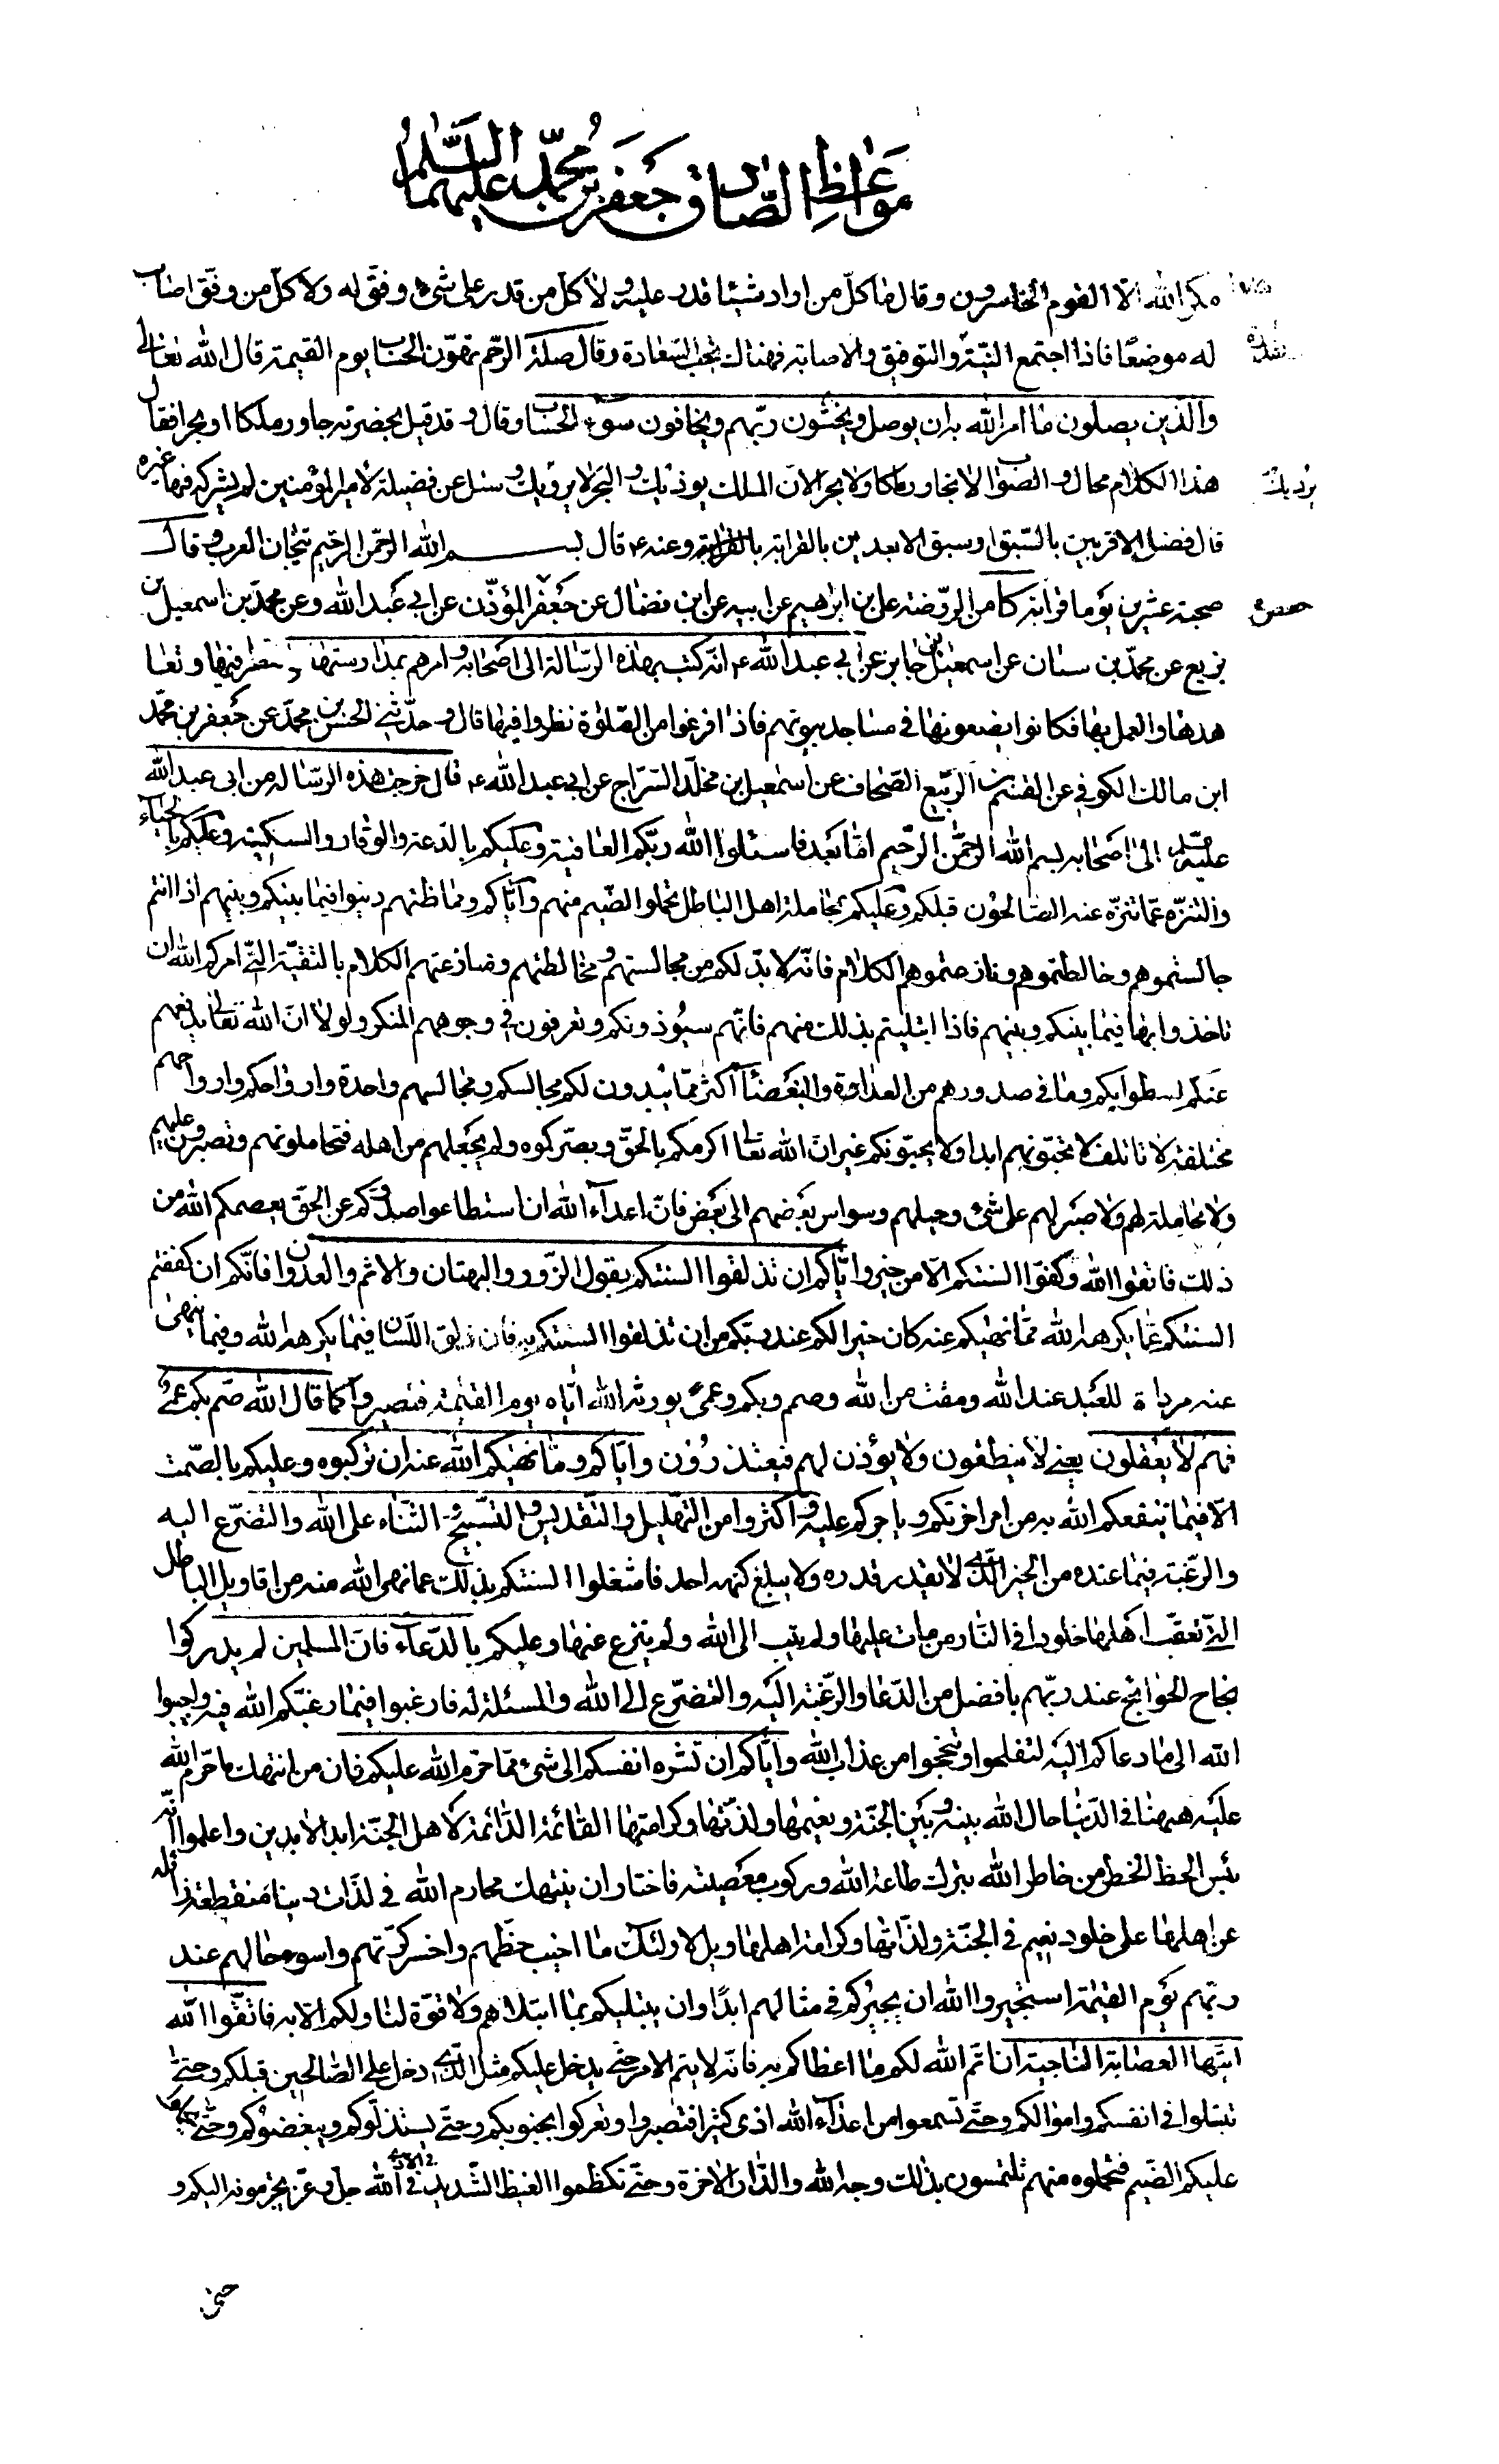 مواعظ الصادق جعفر بن محمد عليهما السلم
مكر الله الا القوم الخاسرون وقال ما كل من اراد شيئا قدر عليه ولا كل من قدر على شئ وفق له ولا كل من وفق اصاب
له موضعا فاذا اجتمع النية والتوفيق والاصابة فهنالك تجب السعادة وقال صلة الرحم تهون الحساب يوم القيمة قال الله تعالى
والذين يصلون ما امر الله به ان يوصل ويخشون ربهم ويخافون سوء الحساب وقال وقد قيل بحضرته جاور ملكا او بحرا فقال
هذا الكلام محال والصواب لا تجاور ملكا ولا بحرا لان الملك يوذيك والبحر لا يرويك وسئل عن فضيلة لامير المؤمنين لم يشركه فيها غيره
يرديك
قال فضل الاقربين بالسبق وسبق الابعدين بالقرابة وعنه ع قال بسم الله الرحمن الرحيم تيجان العرب وقال
صحبة عشرين يوما قرابة كا من الروضة على بن ابرهيم عن ابيه عن ابن فضال عن جعفر المؤذن عن ابى عبد الله وعن محمد بن اسمعيل بن
بزيع عن محمد بن سنان عن اسمعيل بن جابر عن ابى عبد الله ع انه كتب بهذه الرسالة الى اصحابه وامرهم بمدارستها والنظر فيها وتعا
هدها والعمل بها فكانوا يضعونها في مساجد بيوتهم فاذا فرغوا من الصلوة نظروا فيها قال وحدثنى الحسن بن محمد عن جعفر بن محمد
ابن مالك الكوفى عن القسم بن الربيع الصحاف عن اسمعيل بن مخلد السراج عن ابى عبد الله ع قال خرجت هذه الرسالة من ابى عبد الله
عليه السلم الى اصحابه بسم الله الرحمن الرحيم اما بعد فاسئلوا الله ربكم العافية وعليكم بالدعة والوقار والسكينة وعليكم بالحياء
والتنزه عما تنزه عنه الصالحون قبلكم وعليكم بمجاملة اهل الباطل تحملوا الضيم منهم واياكم ومماظتهم دينوا فيما بينكم وبينهم اذا انتم
جالستموهم وخالطتموهم ونازعتموهم الكلام فانه لا بد لكم من مجالستهم ومخالطتهم ومنازعتهم الكلام بالتقية التى امركم الله ان
تاخذوا بها فيما بينكم وبينهم فاذا ابتليتم بذلك منهم فانهم سيؤذونكم وتعرفون في وجوههم المنكر ولولا ان الله تعالى يدفعهم
عنكم لسطوا بكم وما في صدورهم من العداوة والبغضاء اكثر مما يبدون لكم مجالسكم ومجالسهم واحدة وارواحكم وارواحهم
مختلفة لا تاتلف لا تحبونهم ابدا ولا يحبونكم غير ان الله تعالى اكرمكم بالحق وبصركموه ولم يجعلهم من اهله فتجاملونهم وتصبرون عليهم
ولا مجاملة لهم ولا صبر لهم على شئ وحيلهم وسواس بعضهم الى بعض فان اعداء الله ان استطاعوا صدوكم عن الحق يعصمكم الله من
ذلك فاتقوا الله وكفوا السنتكم الا من خير واياكم ان تذلقوا السنتكم بقول الزور والبهتان والاثم والعدوان فانكم ان كففتم
السنتكم عما يكرهه الله مما نهيكم عنه كان خيرا لكم عند ربكم من ان تذلقوا السنتكم به فان ذلق اللسان فيما يكرهه الله وفيما ينهى
عنه مرداة للعبد عند الله ومقت من الله وصم وبكم وعمى يورثه الله اياه يوم القيمة فتصيروا كما قال الله صم بكم عمى
فهم لا يعقلون يعنى لا ينطقون ولا يؤذن لهم فيعتذرون واياكم وما نهيكم الله عنه ان تركبوه وعليكم بالصمت
الا فيما ينفعكم الله به من امر اخرتكم وياجركم عليه واكثروا من التهليل والتقديس والتسبيح والثناء على الله والتضرع اليه
والرغبة فيما عنده من الخير الذى لا يقدر قدره ولا يبلغ كنهه احد فاشغلوا السنتكم بذلك عما نهى الله عنه من اقاويل الباطل
التى تعقب اهلها خلودا في النار من مات عليها ولم يتب الى الله ولم ينزع عنها وعليكم بالدعاء فان المسلمين لم يدركوا
نجاح الحوائج عند ربهم بافضل من الدعا والرغبة اليه والتضرع الى الله والمسئلة له فارغبوا فيما رغبكم الله فيه واجيبوا
الله الى ما دعاكم اليه لتفلحوا وتنجوا من عذاب الله واياكم ان تشره انفسكم الى شئ مما حرم الله عليكم فان من انتهك ما حرم الله
عليه ههنا في الدنيا حال الله بينه وبين الجنة ونعيمها ولذتها وكرامتها القائمة الدائمة لاهل الجنة ابد الابدين واعلموا انه
بئس الحظ الخطر من خاطر الله بترك طاعة الله وركوب معصيته فاختار ان ينتهك محارم الله في لذات دنيا منقطعة زائلة
عن اهلها على خلود نعيم في الجنة ولذاتها وكرامة اهلها ويل لاولئك ما اخيب حظهم واخسر كرتهم واسوء حالهم عند
ربهم يوم القيمة استجيروا الله ان يجيركم في مثالهم ابدا وان يبتليكم بما ابتلاهم ولا قوة لنا ولكم الا به فاتقوا الله
ايتها العصابة الناجية ان اتم الله لكم ما اعطاكم به فانه لا يتم الامر حتى يدخل عليكم مثل الذى دخل على الصالحين قبلكم وحتى
تبتلوا في انفسكم واموالكم وحتى تسمعوا من اعداء الله اذى كثيرا فتصبروا وتعركوا بجنوبكم وحتى يستذلوكم ويبغضوكم وحتى
عليكم الضيم فتحملوه منهم تلتمسون بذلك وجه الله والدار الاخرة وحتى تكظموا الغيظ الشديد في الله جل وعز يجرمونه اليكم و
حتى